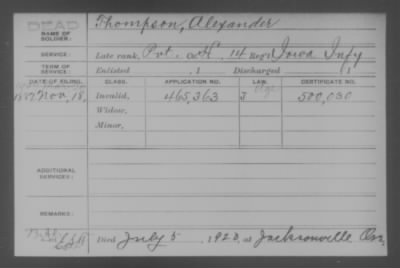 DEAD
NAME OF SOLDIER: Thompson, Alexander
SERVICE: Late rank, Pvt. Co. H, 14 Reg't Iowa Infy
TERM OF SERVICE: Enlisted , 1 Discharged , 1
DATE OF FILING. CLASS. APPLICATION NO. LAW. CERTIFICATE NO.
Nov, 18, Invalid, 465,363 J 500,030
Widow,
Minor,
ADDITIONAL SERVICES:
REMARKS:
Died July 5 , 1920, at Jacksonville Ore,